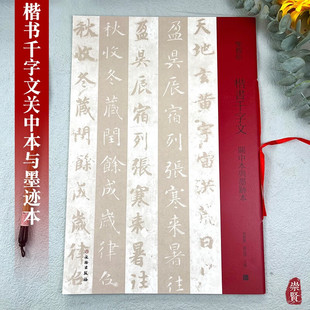 楷书千字文关中本与墨迹本
楷书千字文
关中本与墨迹本
天地玄黄宇宙洪荒日
盈昃辰宿列張寒来暑往
盈昃辰宿列張寒来暑往
秋收冬藏閏餘成歲律吕
秋收冬藏閏餘成歲律吕
崇賢